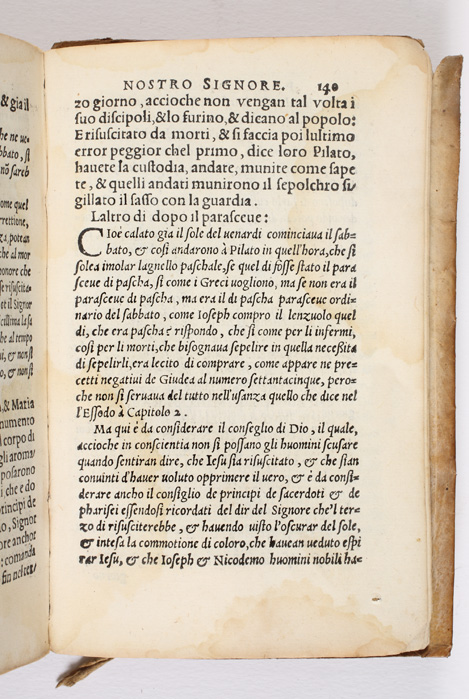 & già il
he ne ue-
bbato, sì
nõ sareb
ome quel
rrettione,
za, potran
che al mor
onore che
se risuscita-
et il Signor
cillima la sa
che al tempo
i, & non si
o, & non si
a, & Maria
numento
l corpo di
gli aroma/
posarono
i che e do
principi de
o, Signor
ore anchor
: comanda
fin nel ter/
NOSTRO SIGNORE. 140
zo giorno, accioche non vengan tal volta i
suo discipoli, & lo furino, & dicano al popolo:
E risuscitato da morti, & si faccia poi lultimo
error peggior chel primo, dice loro Pilato,
hauete la custodia, andate, munite come sape
te, & quelli andati munirono il sepolchro si/
gillato il sasso con la guardia.
Laltro di dopo il parasceue:
Cioè calato gia il sole del venardi cominciaua il sab-
bato, & cosi andarono à Pilato in quell'hora, che si
solea imolar lagnello paschale, se quel di fosse stato il para
sceue di pascha, sì come i Greci uogliono, ma se non era il
parasceue di pascha, ma era il di pascha parasceue ordi-
nario del sabbato, come Ioseph compro il lenzuolo quel
di, che era pascha? rispondo, che sì come per li infermi,
così per li morti, che bisognaua sepelire in quella neceßità
di sepelirli, era lecito di comprare, come appare ne pre-
cetti negatiui de Giudea al numero settantacinque, pero-
che non si seruaua del tutto nell'usanza quello che dice nel
l'Essodo à Capitolo 2.
Ma qui è da considerare il conseglio di Dio, il quale,
accioche in conscientia non si possano gli huomini scusare
quando sentiran dire, che Iesu sia risuscitato, & che sian
conuinti d'hauer uoluto opprimere il uero, & è da consi-
derare ancho il consiglio de principi de sacerdoti & de
pharisei essendosi ricordati del dir del Signore che'l ter-
zo di risusciterebbe, & hauendo uisto l'oscurar del sole,
& intesa la commotione di coloro, che haueän ueduto espi
rar Iesu, & che Ioseph & Nicodemo huomini nobili ha-